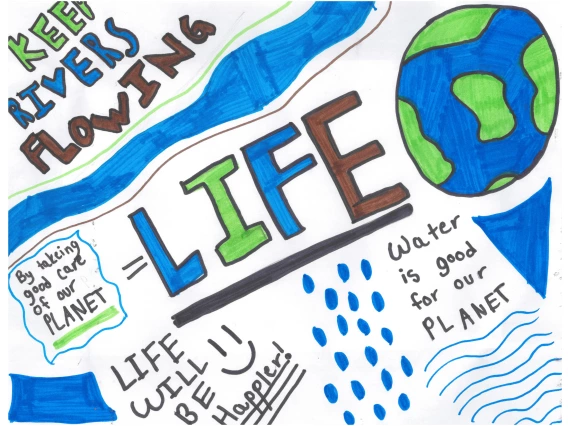 KEEP
RIVERS
FLOWING
= LIFE
By takeing
good care
of our
PLANET
Water
is good
for our
PLANET
LIFE
WILL
BE
Happier!